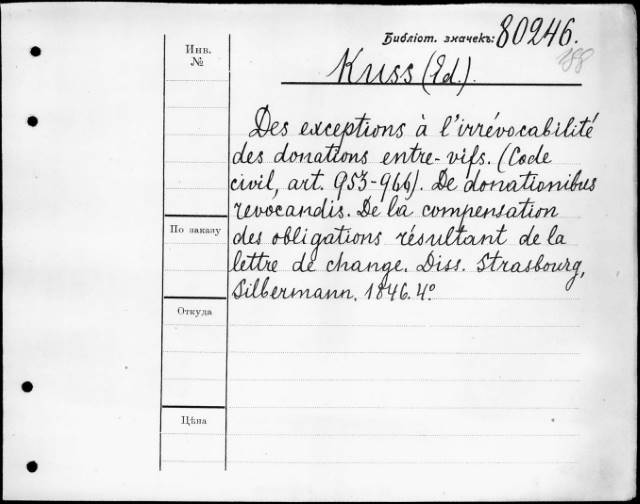 Библіот. значекъ: 80246.
188
Инв.
№
Kuss (Ed.).
Des exceptions à l'irrévocabilité
des donations entre-vifs. (Code
civil, art. 953-966). De donationibus
revocandis. De la compensation
des obligations résultant de la
lettre de change. Diss. Strasbourg,
Silbermann. 1846. 4º
По заказу
Откуда
Цѣна